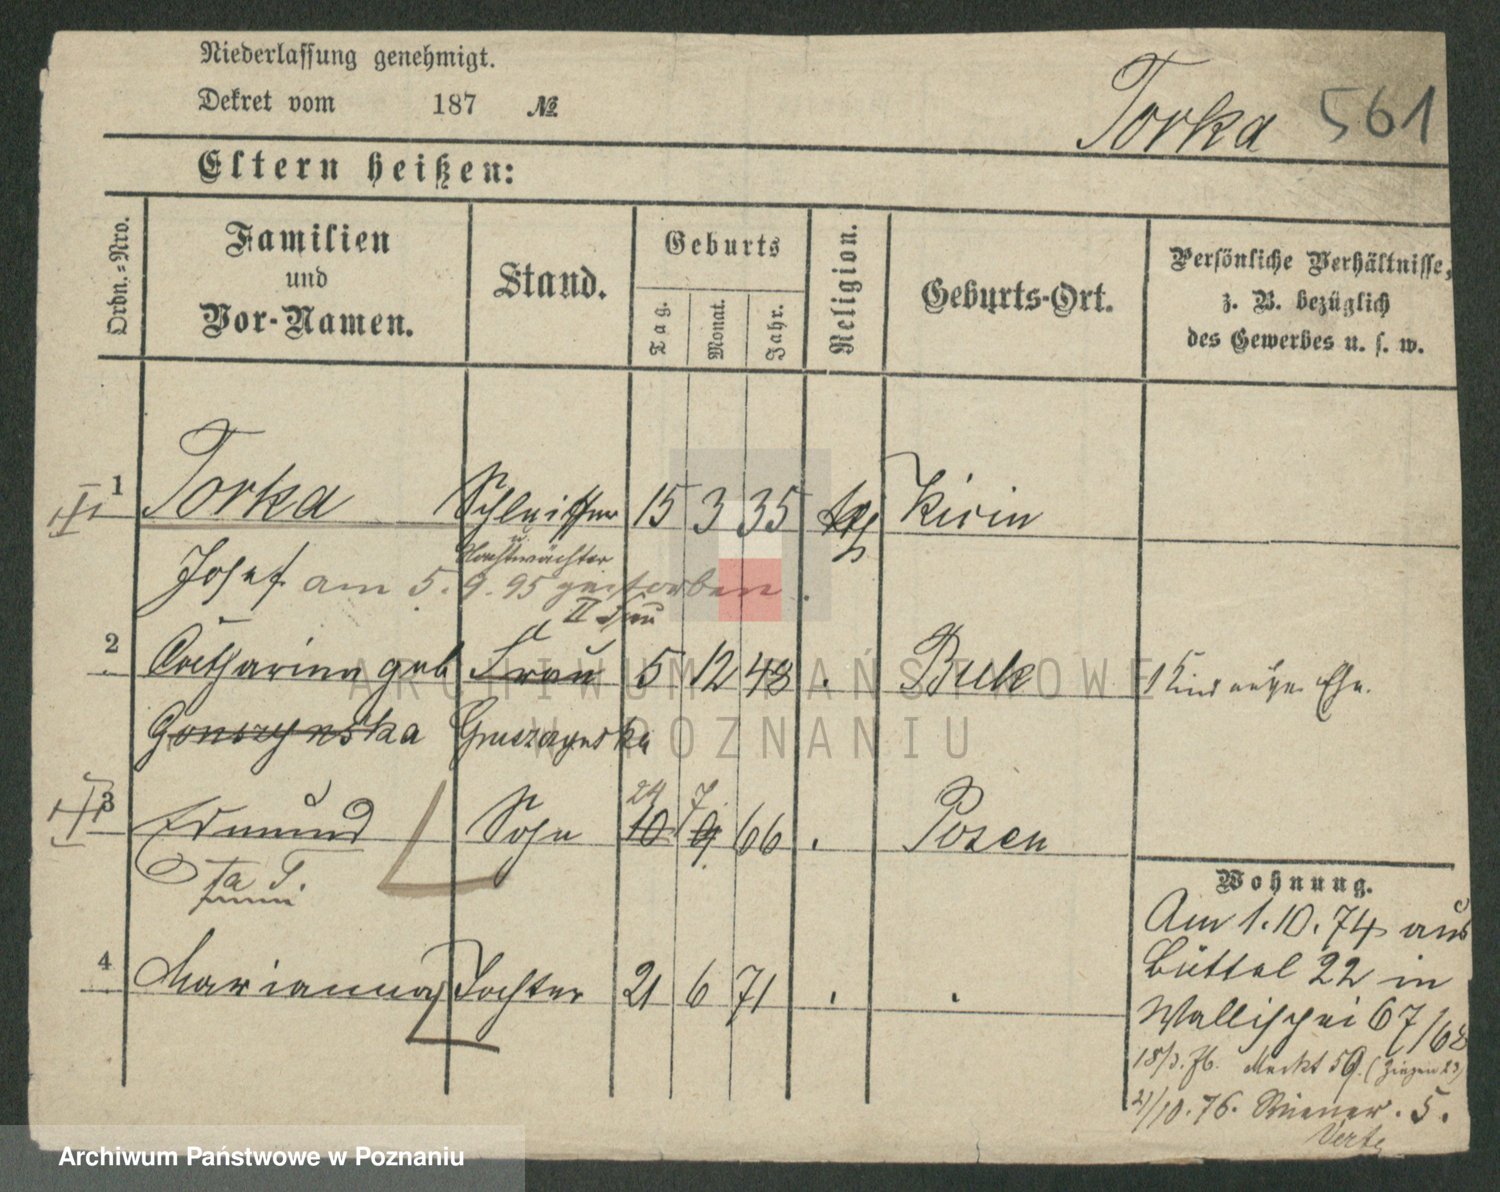 Niederlassung genehmigt.
Dekret vom 187 №
Torka 561
Eltern heißen:
Ordn.-Nro.
Familien und Vor-Namen.
Stand.
Geburts
Tag.
Monat.
Jahr.
Religion.
Geburts-Ort.
Persönliche Verhältnisse,
z. B. bezüglich
des Gewerbes u. s. w.
1 Torka Schleiffer 15 3 35 kath Kicin
u. Nachtwächter
Josef am 5. 9. 95 gestorben.
II Frau
2 Catharina geb Frau 5 12 48 . Buk 1 Kind Ehe.
Gonszynska Gruszczynska
24 7
3 Edmund Sohn 10 9 66 . Posen
4 Marianna Tochter 21 6 71 . .
Wohnung.
Am 1.10.74 aus
Büttel 22 in
Wallischei 67/68
18/3. 76. Markt 59. (Ziegen 23)
21/10. 76. Wiener. 5.
Verte
ARCHIWUM PAŃSTWOWE
W POZNANIU
Archiwum Państwowe w Poznaniu